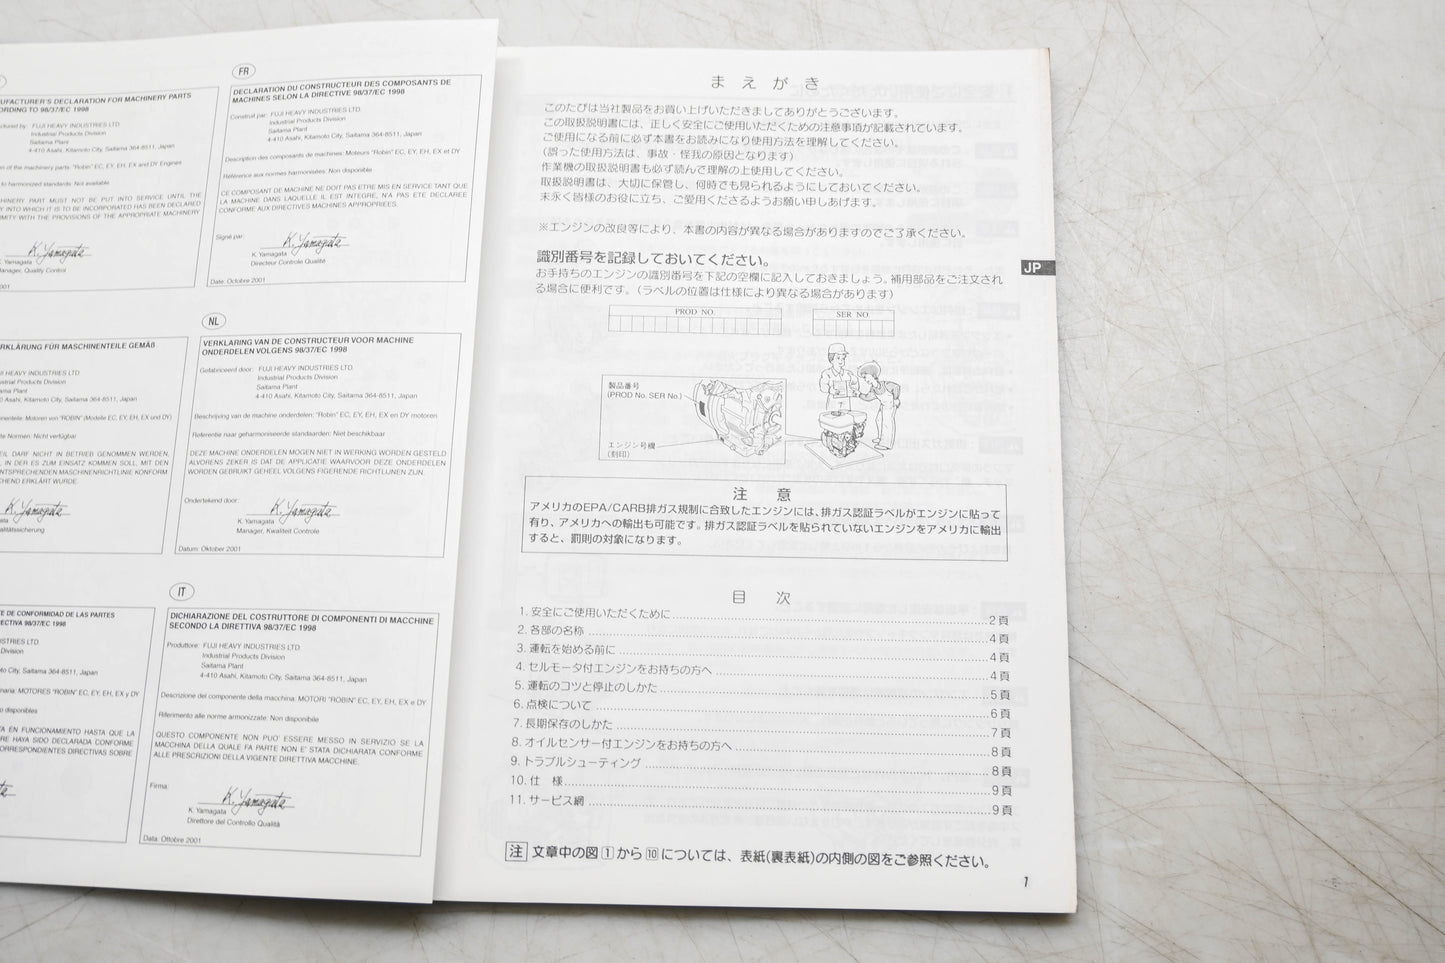 UFACTURER'S DECLARATION FOR MACHINERY PARTS
ORDING TO 98/37/EC 1998
FUJI HEAVY INDUSTRIES LTD.
Industrial Products Division
Saitama Plant
4-410 Asahi, Kitamoto City, Saitama 364-8511, Japan
n of the machinery parts: "Robin" EC, EY, EH, EX and DY Engines
to harmonized standards: Not available
HINERY PART MUST NOT BE PUT INTO SERVICE UNTIL THE
Y INTO WHICH IT IS TO BE INCORPORATED HAS BEEN DECLARED
MITY WITH THE PROVISIONS OF THE APPROPRIATE MACHINERY
K. Yamagata
K. Yamagata
anager, Quality Control
2001
RKLÄRUNG FÜR MASCHINENTEILE GEMÄß
JI HEAVY INDUSTRIES LTD.
ustrial Products Division
ama Plant
0 Asahi, Kitamoto City, Saitama 364-8511, Japan
nenteile: Motoren von "ROBIN" (Modelle EC, EY, EH, EX und DY)
te Normen: Nicht verfügbar
EIL DARF NICHT IN BETRIEB GENOMMEN WERDEN,
, IN DER ES ZUM EINSATZ KOMMEN SOLL, MIT DEN
NTSPRECHENDEN MASCHINENRICHTLINIE KONFORM
CHEND ERKLÄRT WURDE.
K. Yamagata
alitätssicherung
TE DE CONFORMIDAD DE LAS PARTES
ECTIVA 98/37/EC 1998
STRIES LTD.
Division
to City, Saitama 364-8511, Japan
inaria: MOTORES "ROBIN" EC, EY, EH, EX y DY
o disponibles
TA EN FUNCIONAMIENTO HASTA QUE LA
RE HAYA SIDO DECLARADA CONFORME
ORRESPONDIENTES DIRECTIVAS SOBRE
FR
DECLARATION DU CONSTRUCTEUR DES COMPOSANTS DE
MACHINES SELON LA DIRECTIVE 98/37/EC 1998
Construit par: FUJI HEAVY INDUSTRIES LTD.
Industrial Products Division
Saitama Plant
4-410 Asahi, Kitamoto City, Saitama 364-8511, Japan
Description des composants de machines: Moteurs "Robin" EC, EY, EH, EX et DY
Référence aux normes harmonisées: Non disponible
CE COMPOSANT DE MACHINE NE DOIT PAS ETRE MIS EN SERVICE TANT QUE
LA MACHINE DANS LAQUELLE IL EST INTEGRE, N'A PAS ETE DECLAREE
CONFORME AUX DIRECTIVES MACHINES APPROPRIEES.
Signé par:
K. Yamagata
K. Yamagata
Directeur Controle Qualité
Date: Octobre 2001
NL
VERKLARING VAN DE CONSTRUCTEUR VOOR MACHINE
ONDERDELEN VOLGENS 98/37/EC 1998
Gefabriceerd door: FUJI HEAVY INDUSTRIES LTD.
Industrial Products Division
Saitama Plant
4-410 Asahi, Kitamoto City, Saitama 364-8511, Japan
Beschrijving van de machine onderdelen: "Robin" EC, EY, EH, EX en DY motoren
Referentie naar geharmoniseerde standaarden: Niet beschikbaar
DEZE MACHINE ONDERDELEN MOGEN NIET IN WERKING WORDEN GESTELD
ALVORENS ZEKER IS DAT DE APPLICATIE WAARVOOR DEZE ONDERDELEN
WORDEN GEBRUIKT GEHEEL VOLGENS FIGERENDE RICHTLIJNEN ZIJN.
Ondertekend door:
K. Yamagata
K. Yamagata
Manager, Kwaliteit Controle
Datum: Oktober 2001
IT
DICHIARAZIONE DEL COSTRUTTORE DI COMPONENTI DI MACCHINE
SECONDO LA DIRETTIVA 98/37/EC 1998
Produttore: FUJI HEAVY INDUSTRIES LTD.
Industrial Products Division
Saitama Plant
4-410 Asahi, Kitamoto City, Saitama 364-8511, Japan
Descrizione del componente della macchina: MOTORI "ROBIN" EC, EY, EH, EX e DY
Riferimento alle norme armonizzate: Non disponibile
QUESTO COMPONENTE NON PUO' ESSERE MESSO IN SERVIZIO SE LA
MACCHINA DELLA QUALE FA PARTE NON E' STATA DICHIARATA CONFORME
ALLE PRESCRIZIONI DELLA VIGENTE DIRETTIVA MACCHINE.
Firma:
K. Yamagata
K. Yamagata
Direttore del Controllo Qualità
Data: Ottobre 2001
まえがき
このたびは当社製品をお買い上げいただきましてありがとうございます。
この取扱説明書には、正しく安全にご使用いただくための注意事項が記載されています。
ご使用になる前に必ず本書をお読みになり使用方法を理解してください。
(誤った使用方法は、事故・怪我の原因となります)
作業機の取扱説明書も必ず読んで理解の上使用してください。
取扱説明書は、大切に保管し、何時でも見られるようにしておいてください。
末永く皆様のお役に立ち、ご愛用くださるようお願い申しあげます。
※エンジンの改良等により、本書の内容が異なる場合がありますのでご了承ください。
識別番号を記録しておいてください。
お手持ちのエンジンの識別番号を下記の空欄に記入しておきましょう。補用部品をご注文され
る場合に便利です。(ラベルの位置は仕様により異なる場合があります)
PROD NO. SER NO.
製品番号
(PROD No. SER No.)
エンジン号機
(刻印)
注 意
アメリカのEPA/CARB排ガス規制に合致したエンジンには、排ガス認証ラベルがエンジンに貼って
有り、アメリカへの輸出も可能です。排ガス認証ラベルを貼られていないエンジンをアメリカに輸出
すると、罰則の対象になります。
目 次
1. 安全にご使用いただくために 2頁
2. 各部の名称 4頁
3. 運転を始める前に 4頁
4. セルモータ付エンジンをお持ちの方へ 4頁
5. 運転のコツと停止のしかた 5頁
6. 点検について 6頁
7. 長期保存のしかた 7頁
8. オイルセンサー付エンジンをお持ちの方へ 8頁
9. トラブルシューティング 8頁
10. 仕 様 9頁
11. サービス網 9頁
注 文章中の図1から10については、表紙(裏表紙)の内側の図をご参照ください。
1
JP